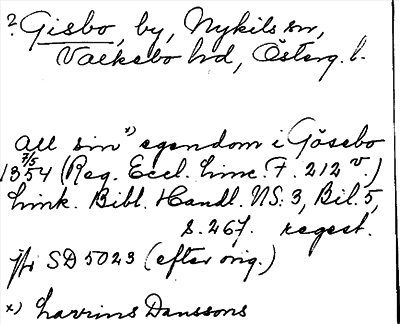 ? Gisbo, by, Nykils sn,
Valkebo hd, Österg. l.
all sin x) egendom i Gösebo
7/5
1354 (Reg. Eccl. Linc. F. 212 v.)
Link. Bibl. Handl. NS. 3, Bil. 5,
s. 267. regest.
jfr SD 5023 (efter orig.)
x) Laurins Danssons